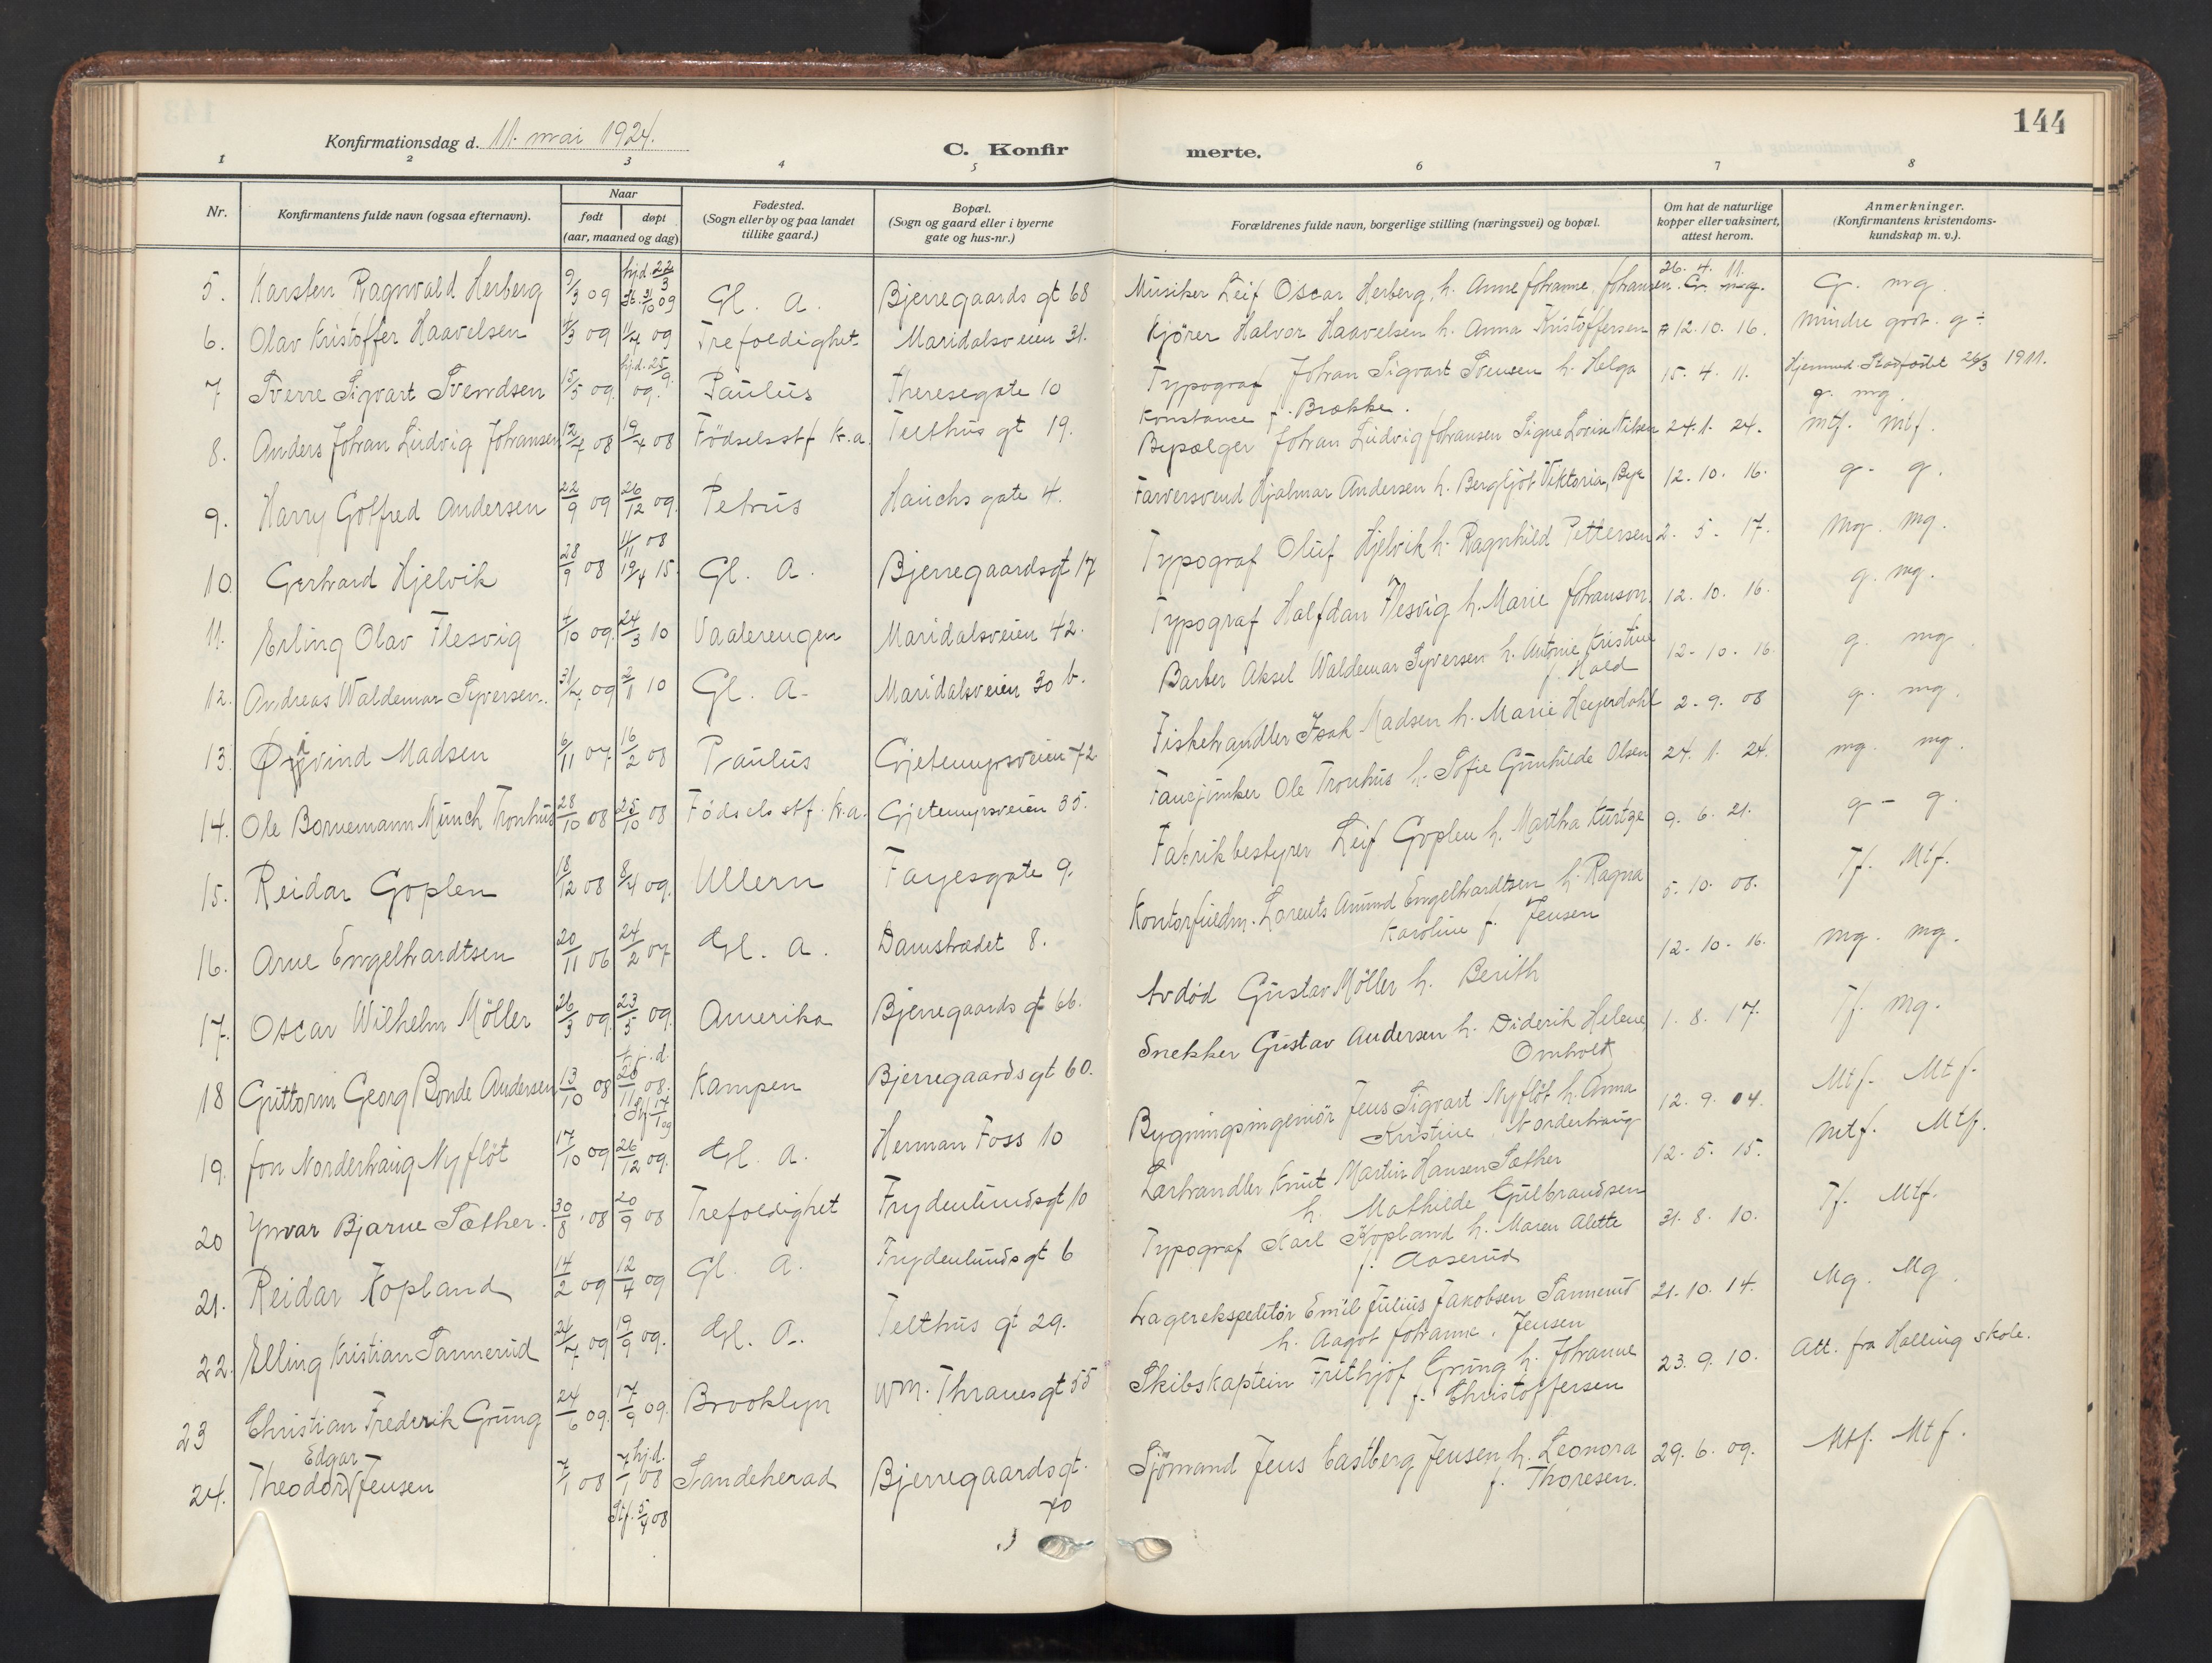 144
Konfirmationsdag d. 11. mai 1924.
C. Konfir merte.
1 2 3 4 5 6 7 8
Nr. Konfirmantens fulde navn (ogsaa efternavn). Naar født døpt (aar, maaned og dag) Fødested. (Sogn eller by og paa landet tillike gaard.) Bopæl. (Sogn og gaard eller i byerne gate og hus-nr.) Forældrenes fulde navn, borgerlige stilling (næringsvei) og bopæl. Om hat de naturlige kopper eller vaksinert, attest herom. Anmerkninger. (Konfirmantens kristendomskundskap m. v.).
5. Karsten Ragnvald Herberg 9/3 09 hj.d. 22/3 st. 31/10 09 Gl. A. Bjerregaards gt 68 Musiker Leif Oscar Herberg, h. Anne Johanne Johansen 26. 4. 11. G. mg.
6. Olav Kristoffer Haavelsen 4/3 09 11/4 09 Trefoldighet Maridalsveien 31. Kjører Halvor Haavelsen h. Anna Kristoffersen 12. 10. 16. Mindre godt. g÷
7 Sverre Sigvart Svendsen 15/5 09. hj.d. 25/9 09. Paulus Theresegate 10 Typograf Johan Sigvart Svensen h. Helga Konstance f. Brække. 15. 4. 11. Hjemmed. Stadfæstet 26/3 1911. g. mg.
8. Anders Johan Ludvig Johansen 12/4 08 19/4 08 Fødselsstf Kr.a. Telthus gt 19. Johan Ludvig Johansen Signe Lovise Nilsen 24. 1. 24. mtf. mtf.
9. Harry Gotfred Andersen 22/9 09 26/12 09. Petrus Hauchs gate 4. Farversvend Hjalmar Andersen h. Bergljot Viktoria, Bye 12. 10. 16. g. g.
10 Gerhard Hjelvik 28/9 08 11/11 08 19/4 15. Gl. A. Bjerregaardsgt 17 Typograf Oluf Hjelvik h. Ragnhild Pettersen 2. 5. 17. Mg. Mg.
11. Erling Olav Flesvig 4/10 09. 24/3 10 Vaalerengen Maridalsveien 42. Typograf Halfdan Flesvig h. Marie Johanson. 12. 10. 16. g. mg.
12. Andreas Waldemar Syversen. 31/7 09 2/1 10 Gl. A. Maridalsveien 30 b. Barber Aksel Waldemar Syversen h. Antonie Kristine f. Hald 12. 10. 16. g. mg.
13. Øivind Madsen 6/11 07. 16/2 08 Paulus Gjetemyrsveien 72 Fiskehandler Isak Madsen h. Marie Heyerdahl 2. 9. 08 g. mg.
14. Ole Bornemann Munch Tronhus 28/10 08 25/10 08 Fødselsstf. Kr.a. Gjetemyrsveien 35. Fanejunker Ole Tronhus h. Sofie Gunhilde Olsen 24. 1. 24. mg. mg.
15. Reidar Goplen 18/12 08 8/4 09. Ullern Fayesgate 9. Fabrikbestyrer Leif Goplen h. Martha Kurtge 9. 6. 21. g - g.
16. Arne Engelhardtsen 20/11 06 24/2 07 Gl. A. Damstrædet 8. Kontorfuldm. Lorents Amund Engelhardtsen h. Ragna Karoline f. Jensen 5. 10. 08. Tf. Mtf.
17. Oscar Wilhelm Möller 26/3 09. 23/5 09. Amerika Bjerregaards gt 66. Avdød Gustav Möller h. Berith 12. 10. 16. mg. mg.
18 Guttorm Georg Bonde Andersen 13/10 08 hj.d. 20/11 08. Stf. 17/1 09 Kampen Bjerregaardsgt 60. Snekker Gustav Andersen h. Diderik Helene, Omholt 1. 8. 17. Tf. Mg.
19. Jon Norderhaug Nyfløt 17/10 09 26/12 09. Gl. A. Herman Foss 10 Bygningsingeniör Jens Sigvart Nyflöt h. Anna Kristine Norderhaug 12. 9. 04. Mtf. Mtf.
20 Yvar Bjarne Sæther. 30/8 08 20/9 08 Trefoldighet Frydenlundsgt 10 Lærhandler Knut Martin Hansen Sæther h. Mathilde Gulbrandsen 12. 5. 15. Mtf. Mtf.
21. Reidar Kopland 14/2 09 12/4 09 Gl. A. Frydenlundsgt 6 Typograf Karl Kopland h. Maren Alette f. Aaserud 31. 8. 10. Tf. Mtf.
22. Elling Kristian Sannerud 24/7 09 19/9 09. Gl. A. Telthus gt 29. Lagerekspeditør Emil Julius Jakobsen Sannerud h. Aagot Johanne. Jensen 21. 10. 14. Mg. Mg.
23 Christian Frederik Grung 24/6 09. 17/9 09. Brooklyn Wm. Thranesgt 55 Skibskaptein Frithjof Grung h. Johanne f. Christoffersen 23. 9. 10. Att. fra Halling skole.
24. Theodor Edgar Jensen 7/1 08 7/1 hj.d. 08 Stf. 5/4 08 Sandeherad Bjerregaardsgt. 70 Sjömand Jens Castberg Jensen h. Leonora f. Thoresen. 29. 6. 09. Mtf. Mtf.